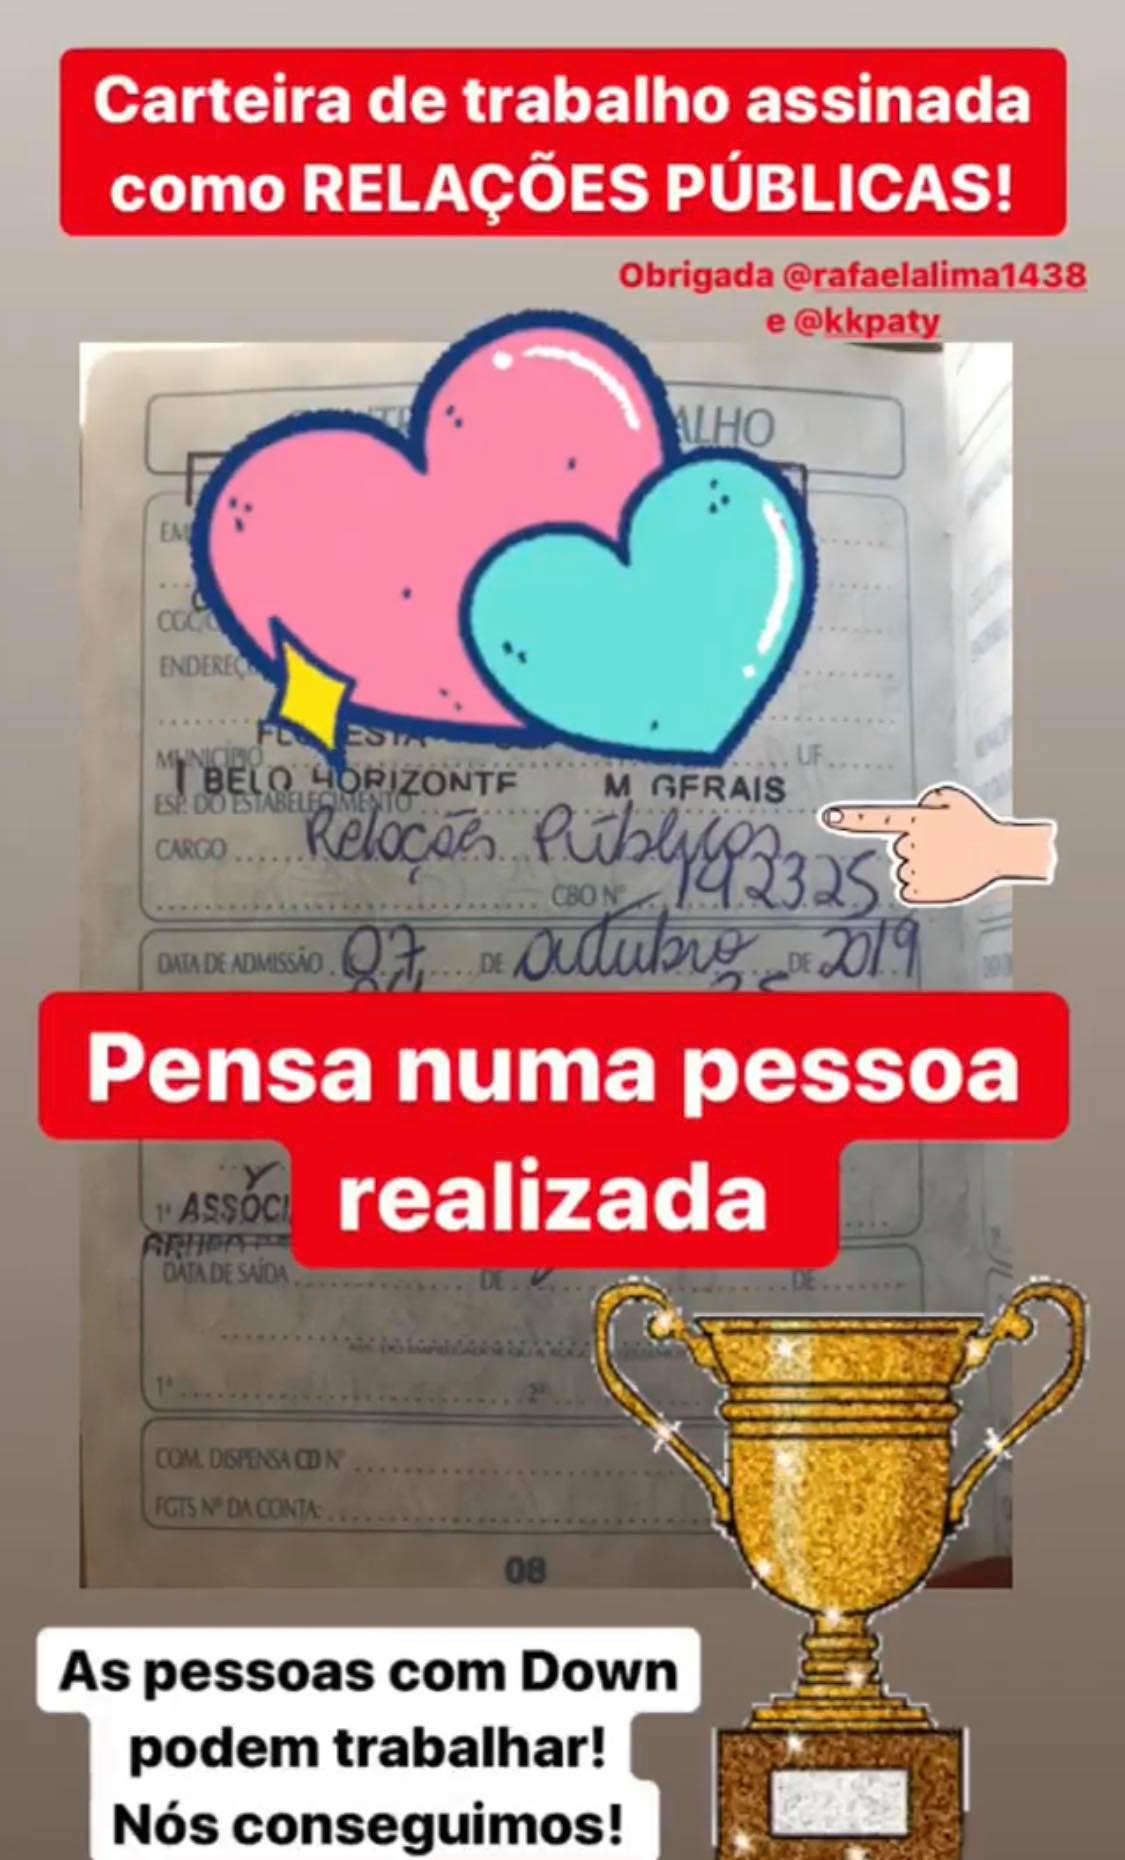 Carteira de trabalho assinada
como RELAÇÕES PÚBLICAS!
Obrigada @rafaelalima1438
e @kkpaty
ALHO
CGC/
ENDEREÇ
MUNICÍPIO
UF
BELO HORIZONTE M GERAIS
ESP. DO ESTABELECIMENTO
CARGO Relações Públicas
CBO Nº 142325
DATA DE ADMISSÃO 07 DE Outubro DE 2019
Pensa numa pessoa
realizada
1ª ASSOCI
DATA DE SAÍDA DE DE
1ª 2ª
COM. DISPENSA CD Nº
FGTS Nº DA CONTA:
08
As pessoas com Down
podem trabalhar!
Nós conseguimos!